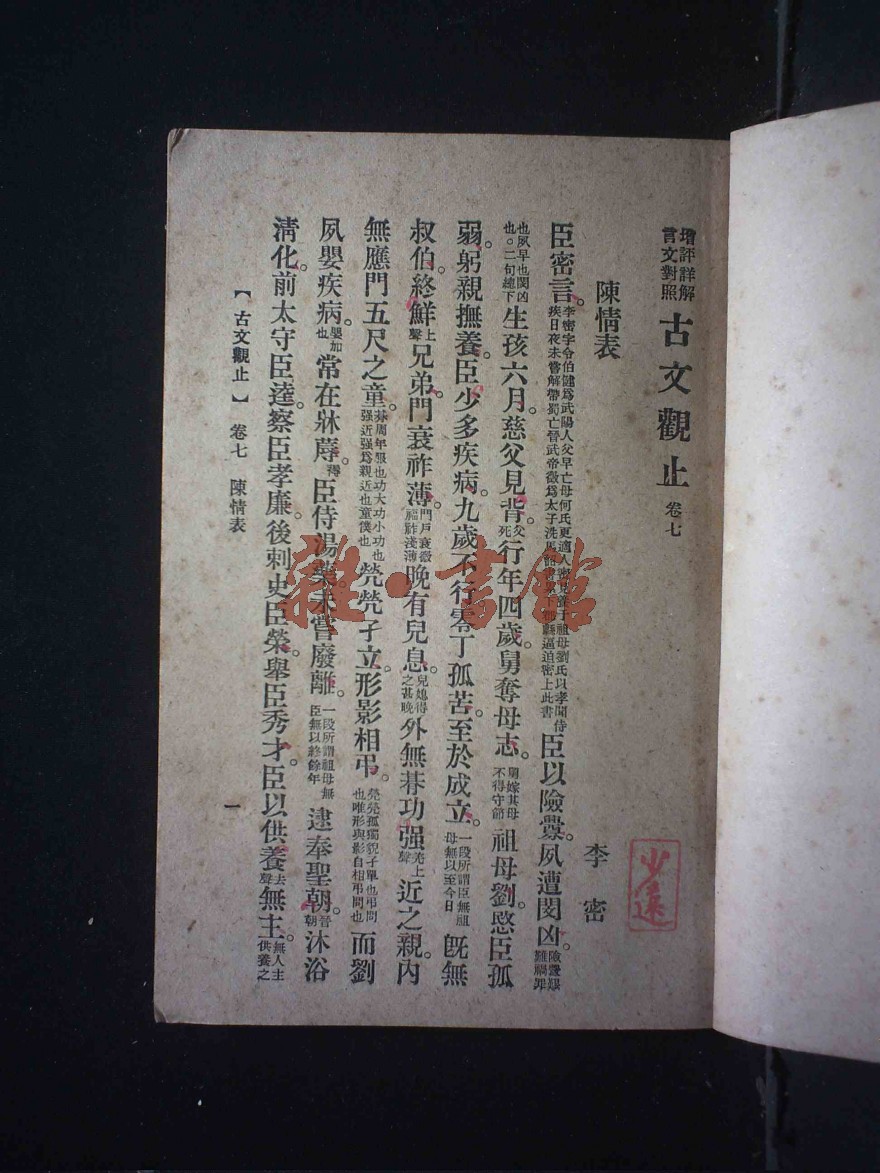 增評詳解
言文對照
古文觀止 卷七
陳情表
李密
臣密言。李密字令伯犍爲武陽人父早亡母何氏更適人密見養于祖母劉氏以孝聞侍疾日夜未嘗解帶蜀亡晉武帝徵爲太子洗馬詔書累下郡縣逼迫密上此書臣以險釁。夙遭閔凶。險釁艱難禍罪
也夙早也閔凶也。二句總下生孩六月。慈父見背。父死行年四歲。舅奪母志。舅嫁其母不得守節祖母劉。愍臣孤
弱。躬親撫養。臣少多疾病。九歲不行。零丁孤苦。至於成立。一段所謂臣無祖母無以至今日旣無
叔伯。終鮮上聲兄弟。門衰祚薄。門戶衰微福祚淺薄晚有兒息。兒媳得之甚晚外無朞功强上聲近之親。內
無應門五尺之童。朞周年服也功大功小功也强近强爲親近也童僕也煢煢孑立。形影相弔。煢煢孤獨貌孑單也弔問也唯形與影自相弔問也而劉
夙嬰疾病。嬰加也常在牀蓐。褥臣侍湯藥。未嘗廢離。一段所謂祖母無臣無以終餘年逮奉聖朝。晉朝沐浴
淸化。前太守臣逵。察臣孝廉。後刺史臣榮。舉臣秀才。臣以供養去聲無主。無人主供養之
【古文觀止】 卷七 陳情表 一
雜·書館
少遠